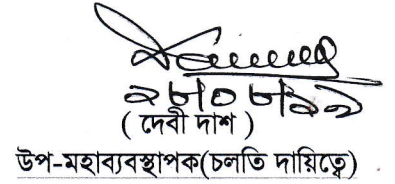 ২৮০৮২১
( দেবী দাশ )
উপ-মহাব্যবস্থাপক(চলতি দায়িত্বে)